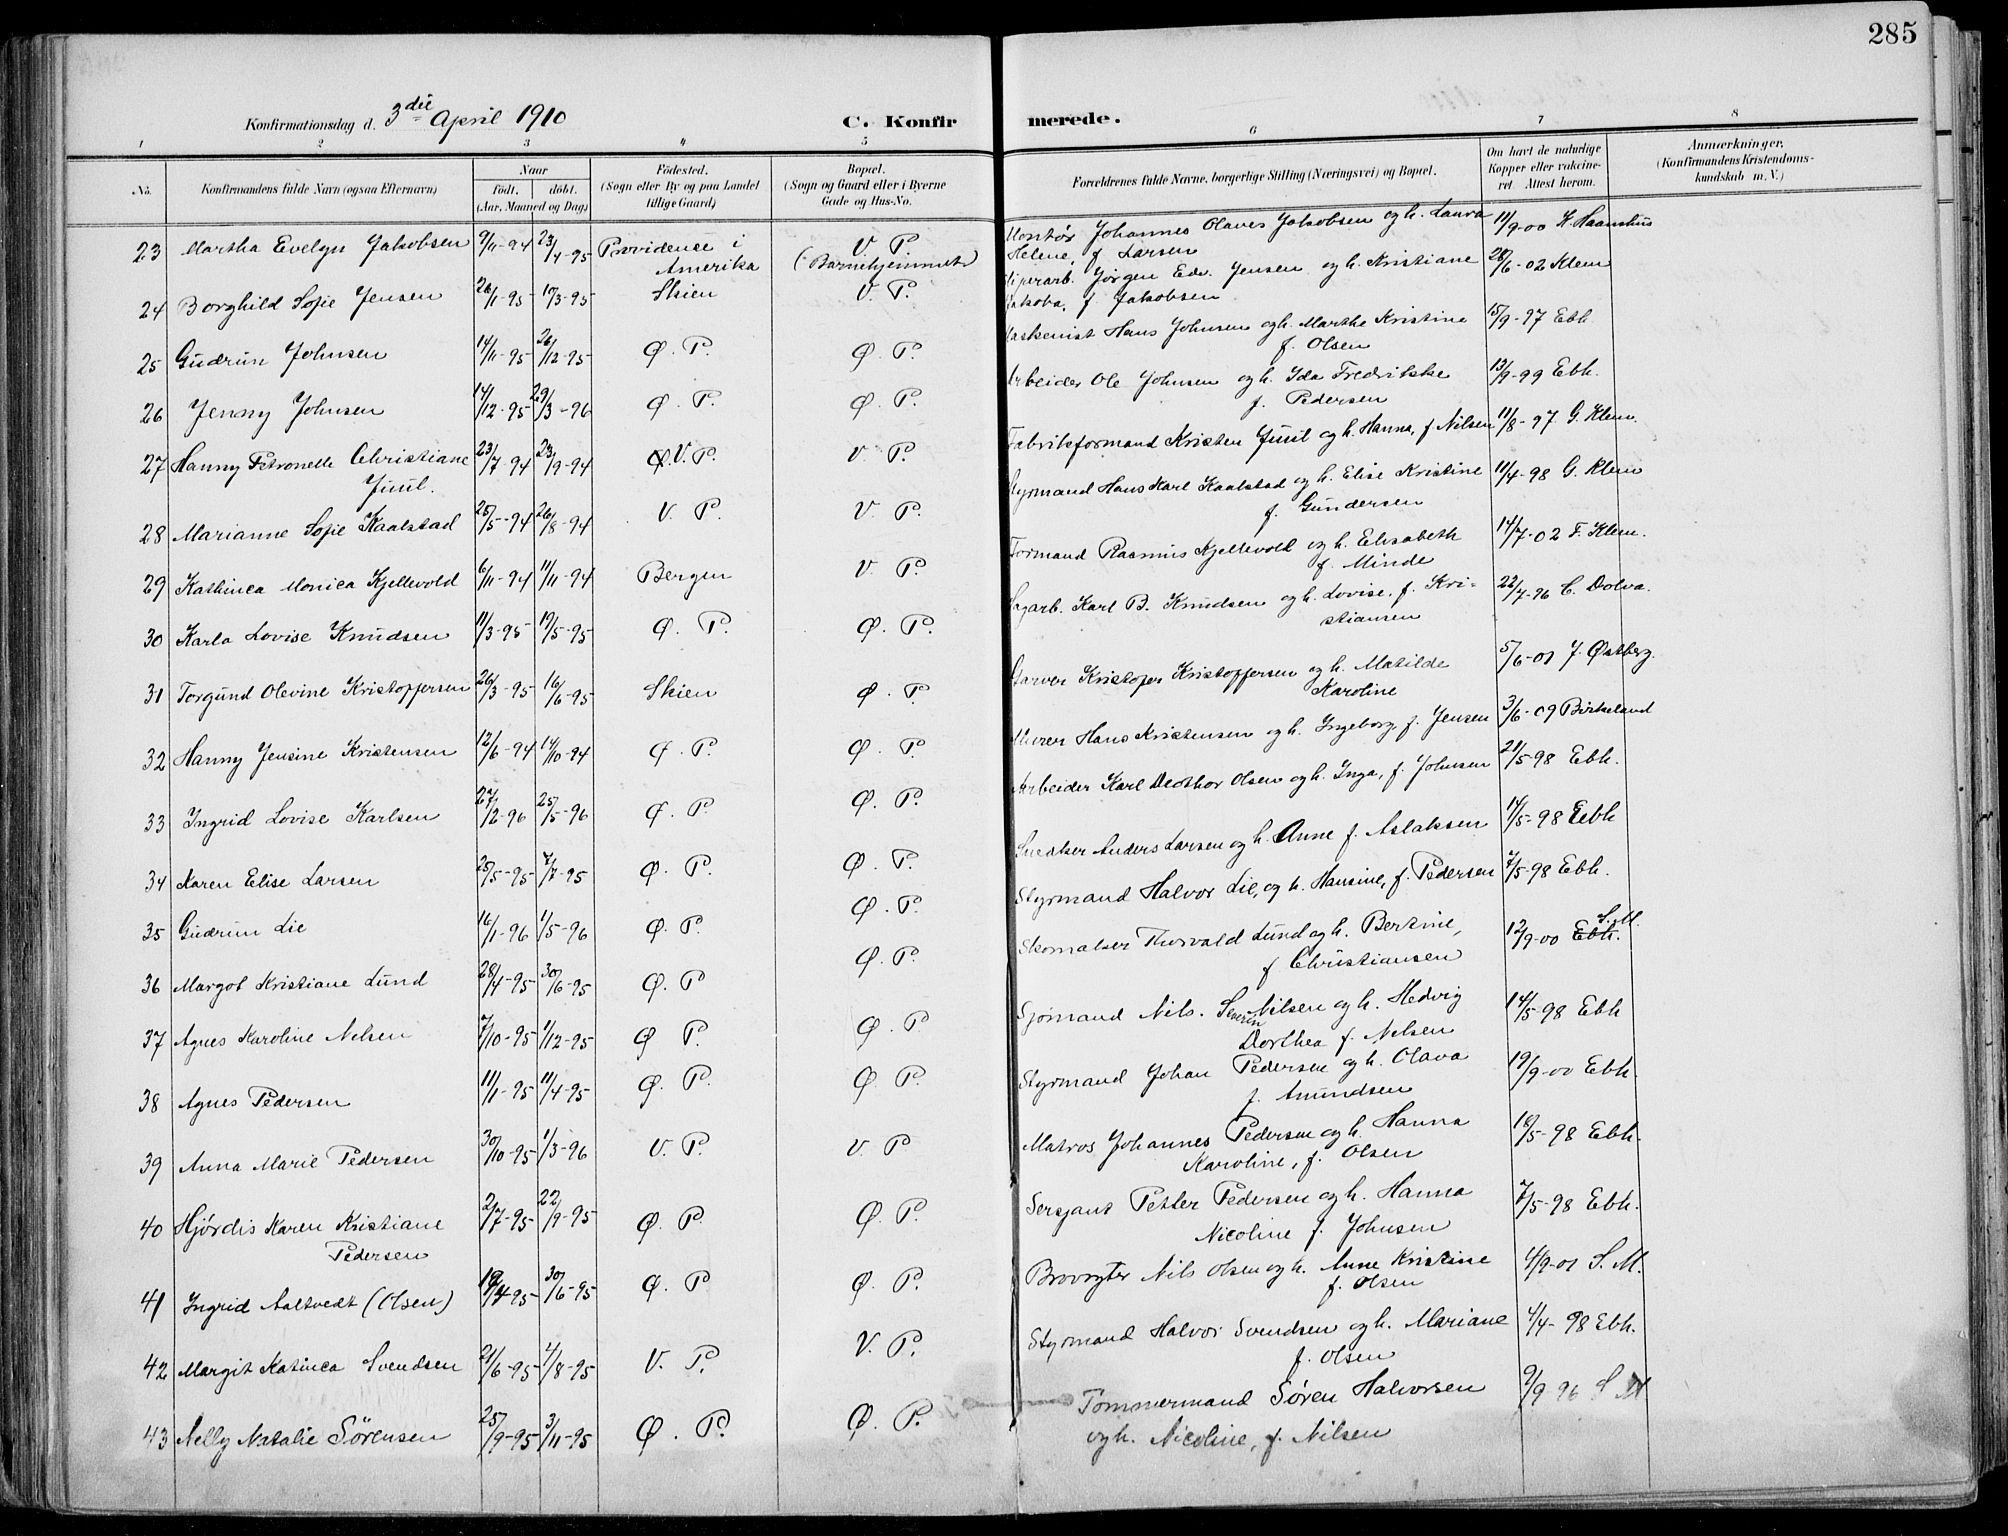 285
Konfirmationsdag d. 3die April 1910
C. Konfirmerede.
1 2 3 4 5 6 7 8
No.
Konfirmandens fulde Navn (ogsaa Efternavn)
Naar
födt. döbt.
(Aar, Maaned og Dag)
Födested.
(Sogn eller By og paa Landet
tillige Gaard)
Bopæl.
(Sogn og Gaard eller i Byerne
Gade og Hus-No.
Forældrenes fulde Navne, borgerlige Stilling (Næringsvei) og Bopæl.
Om havt de naturlige
Kopper eller vakcine-
ret Attest herom.
Anmærkninger,
(Konfirmandens Kristendoms-
kundskab m. V.)
23 Martha Evelyn Jakobsen 9/11-94 23/4-95 Providence i Amerika V. P. (Barnehjemmet) Montör Johannes Olaves Jakobsen og h. Laura Helene, f. Larsen 11/9-00 K. Haanshus
24 Borghild Sofie Jensen 26/1-95 17/3-95 Skien V. P. Sliperarb. Jörgen Edv. Jensen og h. Kristiane Jakoba, f. Jakobsen 28/6-02 Klem
25 Gudrun Johnsen 14/11-95 26/12-95 Ø. P. Ø. P. Maskenist Hans Johnsen og h. Marthe Kristine f. Olsen 15/9-97 Ebh.
26 Jenny Johnsen 14/12-95 29/3-96 Ø. P. Ø. P. Arbeider Ole Johnsen og h. Ida Fredrikke f. Pedersen 13/9-99 Ebh.
27 Hanny Petronelle Christiane Juul. 23/7-94 23/9-94 V. P. V. P. Fabrikformand Kristen Juul og h. Hanna, f. Nilsen 11/8-97 G. Klem.
28 Marianne Sofie Kaalstad 25/5-94 26/8-94 V. P. V. P. Styrmand Hans Karl Kaalstad og h. Elise Kristine f. Gundersen 11/4-98 G. Klem
29 Kathinca Monica Kjellevold 6/11-94 11/11-94 Bergen V. P. Formand Rasmus Kjellevold og h. Elisabeth f. Minde 14/7-02 F. Klem.
30 Karla Lovise Knudsen 11/3-95 19/5-95 Ø. P. Ø. P. Sagarb. Karl B. Knudsen og h. Lovise, f. Kri-stiansen 22/7-96 C. Dolva.
31 Torgund Olevine Kristoffersen 26/3-95 16/6-95 Skien Ø. P. Garver Kristofer Kristoffersen og h. Matilde Karoline 5/6-01 J. Østberg.
32 Hanny Jensine Kristensen 12/6-94 14/10-94 Ø. P. Ø. P. Murer Hans Kristensen og h. Ingeborg, f. Jensen 3/6-09 Birkeland
33 Ingrid Lovise Karlsen 27/2-96 25/5-96 Ø. P. Ø. P. Arbeider Karl Olsen og h. Inga, f. Johnsen 21/5-98 Ebh.
34 Karen Elise Larsen 25/5-95 7/7-95 Ø. P. Ø. P. Snedker Anders Larsen og h. Anne f. Aslaksen 14/5-98 Ebh
35 Gudrun Lie 16/1-96 1/5-96 Ø. P. Ø. P. Styrmand Halvor Lie, og h. Hansine, f. Pedersen 7/5-98 Ebh.
36 Margot Kristiane Lund 28/4-95 30/6-95 Ø. P. Ø. P. Skomaker Thorvald Lund og h. Bertine, f. Christiansen 12/9-00 Ebh. S. M.
37 Agnes Karoline Nelsen 7/10-95 1/12-95 Ø P. Ø. P Sjömand Nils. Severin Nilsen og h. Hedvig Dorthea f. Nelsen 14/5-98 Ebh
38 Agnes Pedersen 11/1-95 11/4-95 Ø. P. Ø. P. Styrmand Johan Pedersen og h. Olava f. Amundsen 19/9-00 Ebh.
39 Anna Marie Pedersen 30/10-95 1/3-96 V. P. V. P Matros Johannes Pedersen og h. Hanna Karoline, f. Olsen 18/5-98 Ebh.
40 Hjördis Karen Kristiane Pedersen 2/7-95 22/9-95 Ø. P. Ø. P. Sersjant Petter Pedersen og h. Hanna Nicoline f. Johnsen 7/5-98 Ebh.
41 Ingrid Aaltvedt (Olsen) 19/4-95 30/6-95 Ø. P. Ø. P. Brovogter Nils Olsen og h. Anne Kristine f. Olsen 4/9-01 S. M.
42 Margit Katinca Svendsen 21/6-95 4/8-95 V. P. V. P. Styrmand Halvor Svendsen og h. Mariane f. Olsen 4/4-98 Ebh.
43 Nelly Natalie Sörensen 25/9-95 3/11-95 Ø. P. Ø. P. Tömmermand Sören Halvorsen og h. Nicoline, f. Nilsen 9/9-96 S M